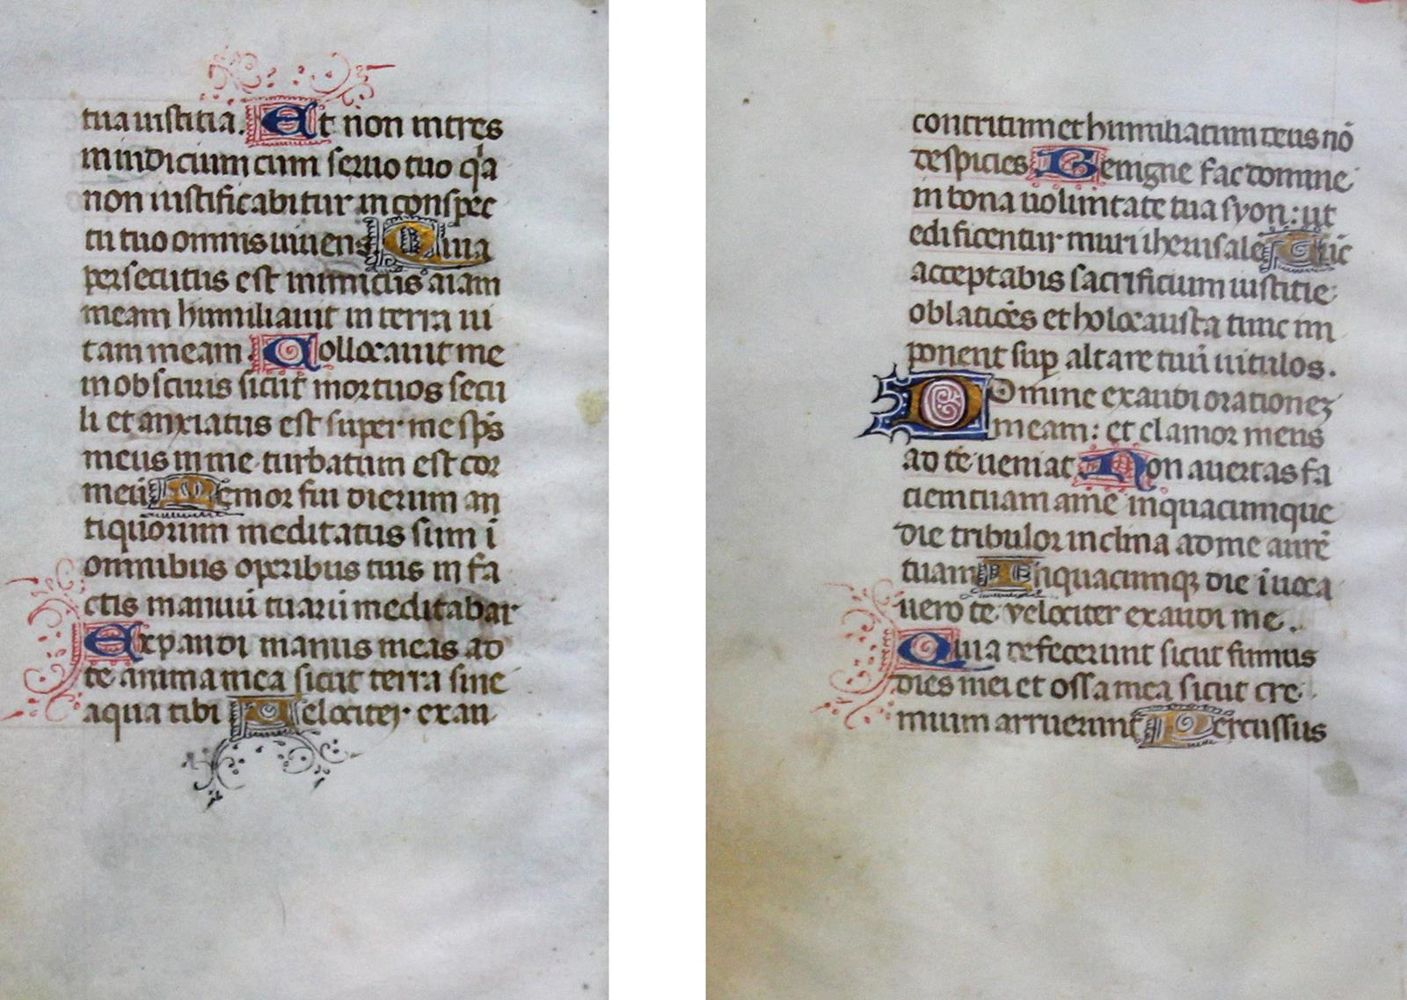 tua iustitia. Et non intres
in iudicium cum seruo tuo q'a
non iustificabitur in conspec
tu tuo omnis uiuens Quia
persecutus est inimicus aīam
meam humiliauit in terra ui
tam meam. Collocauit me
in obscuris sicut mortuos secu
li et anxiatus est super me sp̄s
meus in me turbatum est cor
meū Memor fui dierum an
tiquorum meditatus sum ī
omnibus operibus tuis in fa
ctis manuū tuarū meditabar
Expandi manus meas ad
te anima mea sicut terra sine
aqua tibi Velociter exau
contritum et humiliatum deus nō
despicies Benigne fac domine
in bona uoluntate tua syon: ut
edificentur muri iherusale Tūc
acceptabis sacrificium iustitie
oblatiōes et holocausta tunc im
ponent sup altare tuū uitulos.
Domine exaudi orationez
meam: et clamor meus
ad te ueniat Non auertas fa
ciem tuam a me in quacumque
die tribulor inclina ad me aurē
tuam In quacumq; die īuoca
uero te velociter exaudi me.
Quia defecerunt sicut fumus
dies mei et ossa mea sicut cre
mium arruerunt Percussus